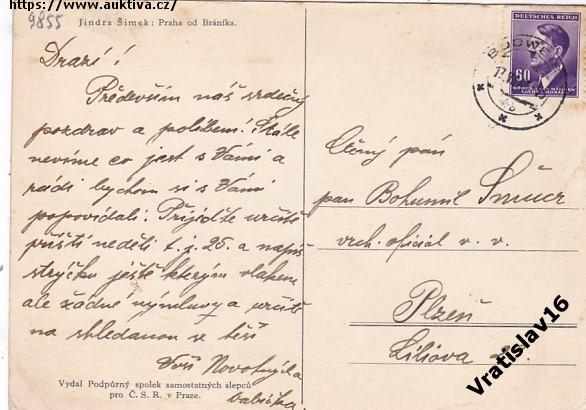 https://www.auktiva.cz/
9855
Jindra Šimek: Praha od Bráníka.
Drazí!
Především náš srdečný
pozdrav a políbení! Stále
nevíme co jest s Vámi a
rádi bychom si s Vámi
popovídali. Přijeďte určitě
příští neděli t. j. 25. a napiš
strýčku ještě kterým vlakem
ale žádné výmluvy a určitě
na shledanou se těší
Vaši Novotných a
babička.
Vydal Podpůrný spolek samostatných slepců
pro Č. S. R. v Praze.
DEUTSCHES REICH
60
BÖHMEN UND MÄHREN
ČECHY A MORAVA
BUDWEIS
Ctěný pán
pan Bohumil
vrch. oficiál v. v.
Plzeň
Liliova
Vratislav16